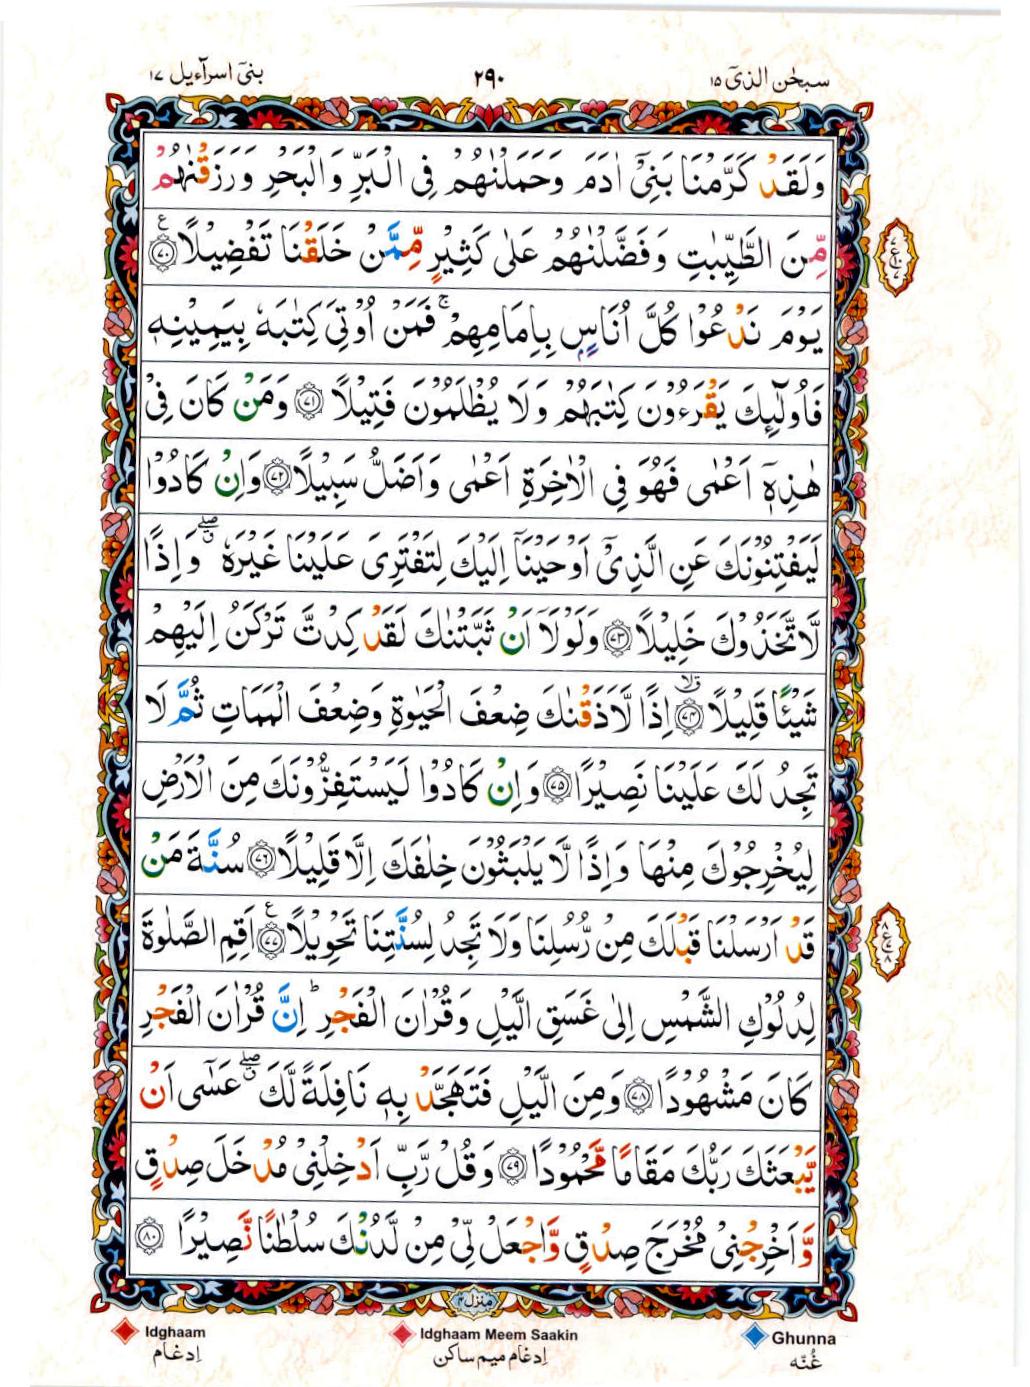 سبحٰن الذیٓ ۱۵ ۲۹۰ بنیٓ اسرآءیل ۱۷
وَلَقَدْ كَرَّمْنَا بَنِیْۤ اٰدَمَ وَحَمَلْنٰهُمْ فِی الْبَرِّ وَالْبَحْرِ وَرَزَقْنٰهُمْ
مِّنَ الطَّیِّبٰتِ وَفَضَّلْنٰهُمْ عَلٰی كَثِیْرٍ مِّمَّنْ خَلَقْنَا تَفْضِیْلًا ﴿۷۰﴾ ع
یَوْمَ نَدْعُوْا كُلَّ اُنَاسٍۭ بِاِمَامِهِمْ ۚ فَمَنْ اُوْتِیَ كِتٰبَهٗ بِیَمِیْنِهٖ
فَاُولٰٓئِكَ یَقْرَءُوْنَ كِتٰبَهُمْ وَلَا یُظْلَمُوْنَ فَتِیْلًا ﴿۷۱﴾ وَمَنْ كَانَ فِیْ
هٰذِهٖۤ اَعْمٰی فَهُوَ فِی الْاٰخِرَةِ اَعْمٰی وَاَضَلُّ سَبِیْلًا ﴿۷۲﴾ وَاِنْ كَادُوْا
لَیَفْتِنُوْنَكَ عَنِ الَّذِیْۤ اَوْحَیْنَاۤ اِلَیْكَ لِتَفْتَرِیَ عَلَیْنَا غَیْرَهٗ ۖق وَاِذًا
لَّاتَّخَذُوْكَ خَلِیْلًا ﴿۷۳﴾ وَلَوْلَاۤ اَنْ ثَبَّتْنٰكَ لَقَدْ كِدْتَّ تَرْكَنُ اِلَیْهِمْ
شَیْـًٔا قَلِیْلًا ﴿۷۴﴾ قلا اِذًا لَّاَذَقْنٰكَ ضِعْفَ الْحَیٰوةِ وَضِعْفَ الْمَمَاتِ ثُمَّ لَا
تَجِدُ لَكَ عَلَیْنَا نَصِیْرًا ﴿۷۵﴾ وَاِنْ كَادُوْا لَیَسْتَفِزُّوْنَكَ مِنَ الْاَرْضِ
لِیُخْرِجُوْكَ مِنْهَا وَاِذًا لَّا یَلْبَثُوْنَ خِلٰفَكَ اِلَّا قَلِیْلًا ﴿۷۶﴾ سُنَّةَ مَنْ
قَدْ اَرْسَلْنَا قَبْلَكَ مِنْ رُّسُلِنَا وَلَا تَجِدُ لِسُنَّتِنَا تَحْوِیْلًا ﴿۷۷﴾ ع اَقِمِ الصَّلٰوةَ
لِدُلُوْكِ الشَّمْسِ اِلٰی غَسَقِ الَّیْلِ وَقُرْاٰنَ الْفَجْرِ ؕ اِنَّ قُرْاٰنَ الْفَجْرِ
كَانَ مَشْهُوْدًا ﴿۷۸﴾ وَمِنَ الَّیْلِ فَتَهَجَّدْ بِهٖ نَافِلَةً لَّكَ ۖق عَسٰۤی اَنْ
یَّبْعَثَكَ رَبُّكَ مَقَامًا مَّحْمُوْدًا ﴿۷۹﴾ وَقُلْ رَّبِّ اَدْخِلْنِیْ مُدْخَلَ صِدْقٍ
وَّاَخْرِجْنِیْ مُخْرَجَ صِدْقٍ وَّاجْعَلْ لِّیْ مِنْ لَّدُنْكَ سُلْطٰنًا نَّصِیْرًا ﴿۸۰﴾
منزل ۴
Idghaam Idghaam Meem Saakin Ghunna
اِدغام اِدغام میم ساکن غُنّه